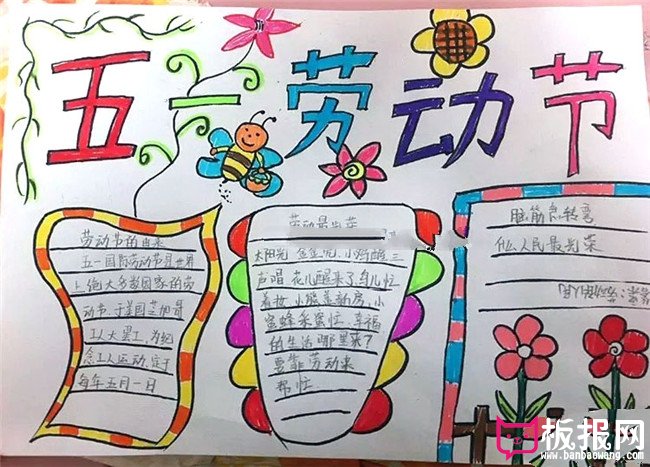 五一劳动节
劳动节的由来
五一国际劳动节是世界
上绝大多数国家的劳
动节.于美国芝加哥
工人大罢工.为纪
念工人运动.定于
每年五月一日
劳动最光荣
太阳光 金金光.小鸡醒 三
声唱 花儿醒来了.鸟儿忙
着妆 小熊盖新房.小
蜜蜂采蜜忙.幸福
的生活哪里来了
要靠劳动来
帮忙
脑筋急转弯
什么人民最光荣
板报网
www.banbaowang.com